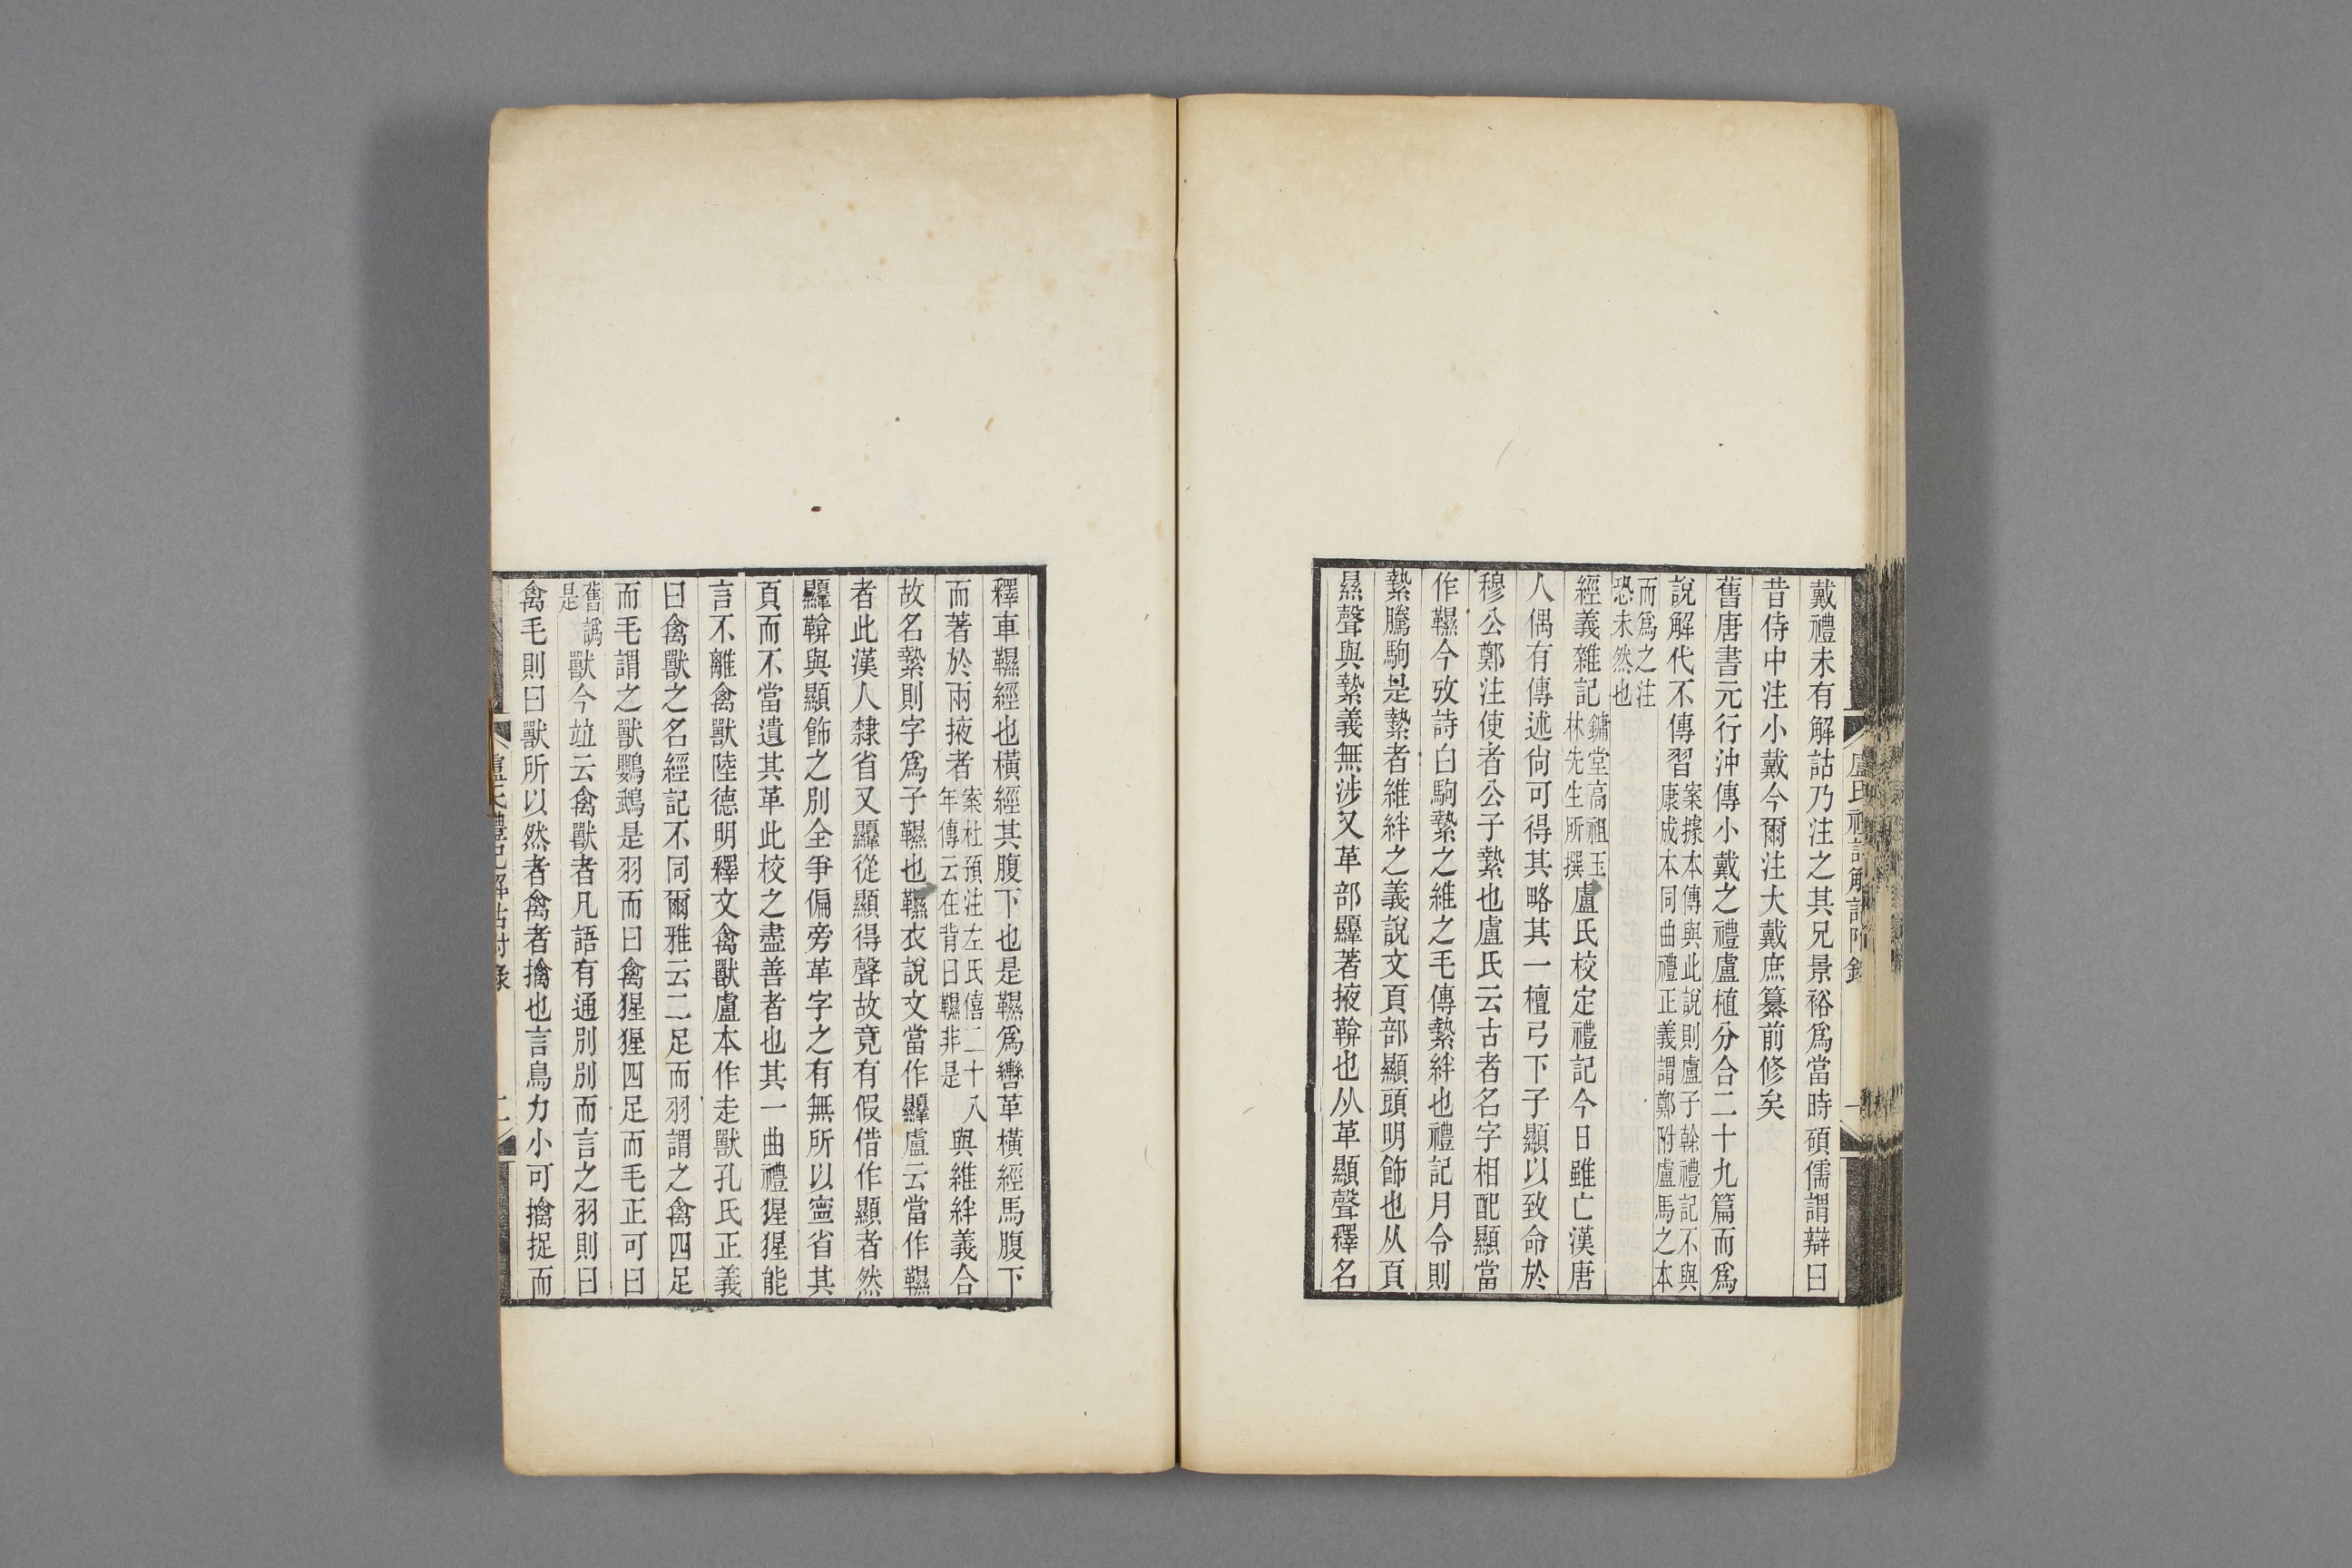 戴禮未有解詁乃注之其兄景裕爲當時碩儒謂辯曰
昔侍中注小戴今爾注大戴庶纂前修矣
舊唐書元行沖傳小戴之禮盧植分合二十九篇而爲
說解代不傳習案據本傳與此說則盧子榦禮記不與
康成本同曲禮正義謂鄭附盧馬之本
而爲之注
恐未然也
經義雜記鏞堂高祖玉
林先生所撰盧氏校定禮記今日雖亡漢唐
人偶有傳述尙可得其略其一檀弓下子顯以致命於
穆公鄭注使者公子縶也盧氏云古者名字相配顯當
作韅今攷詩白駒縶之維之毛傳縶絆也禮記月令則
縶騰駒是縶者維絆之義說文頁部顯頭明飾也从頁
㬎聲與縶義無涉又革部韅著掖鞥也从革顯聲釋名
釋車韅經也橫經其腹下也是韅爲轡革橫經馬腹下
而著於兩掖者案杜預注左氏僖二十八
年傳云在背曰韅非是與維絆義合
故名縶則字爲子韅也韅衣說文當作韅盧云當作韅
者此漢人隸省又韅從顯得聲故竟有假借作顯者然
韅鞥與顯飾之別全爭偏旁革字之有無所以寍省其
頁而不當遺其革此校之盡善者也其一曲禮猩猩能
言不離禽獸陸德明釋文禽獸盧本作走獸孔氏正義
曰禽獸之名經記不同爾雅云二足而羽謂之禽四足
而毛謂之獸鸚鵡是羽而曰禽猩猩四足而毛正可曰
舊譌
是獸今竝云禽獸者凡語有通別別而言之羽則曰
禽毛則曰獸所以然者禽者擒也言鳥力小可擒捉而
盧氏禮記解詁附錄
二